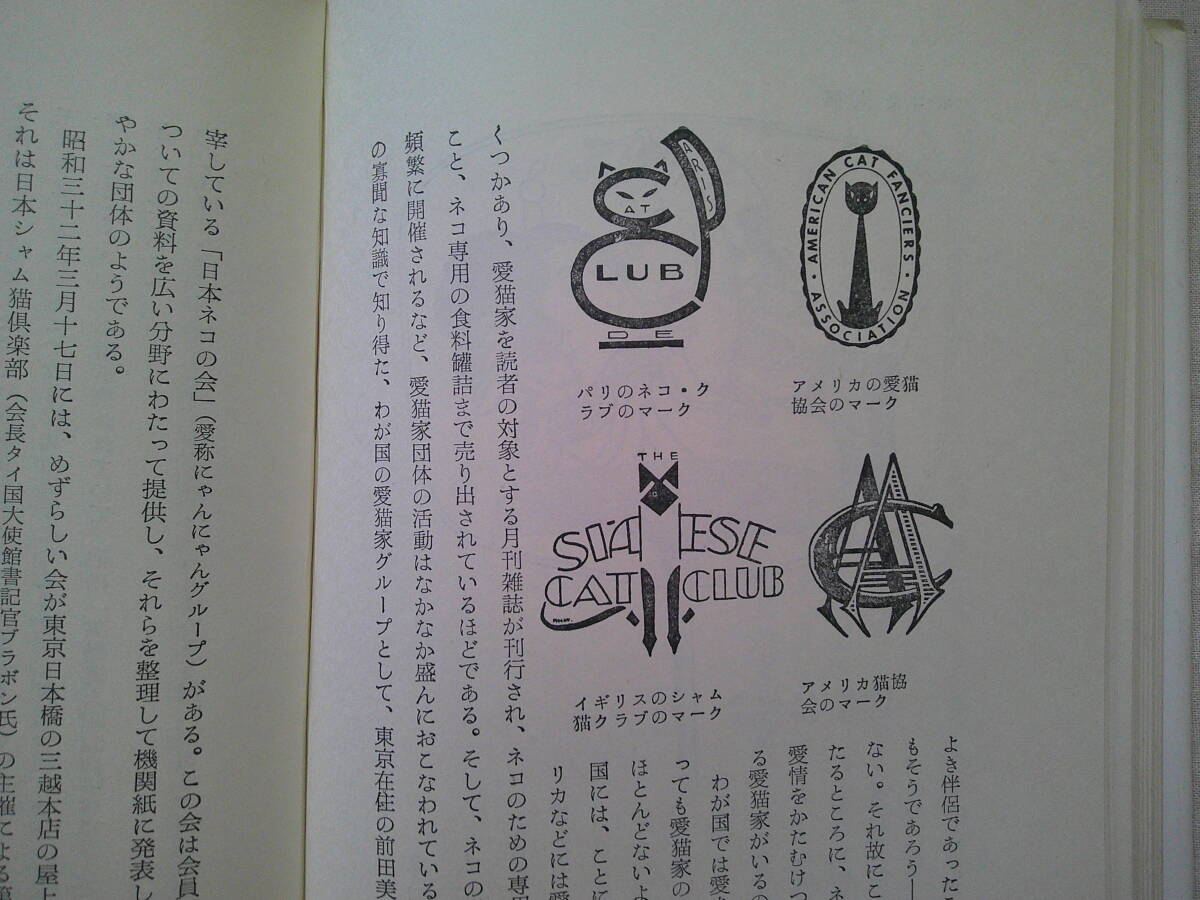 AMERICAN CAT FANCIERS
ASSOCIATION
アメリカの愛猫
協会のマーク
CAT
CLUB
DE
PARIS
パリのネコ・ク
ラブのマーク
ACA
アメリカ猫協
会のマーク
THE
SIAMESE
CAT CLUB
イギリスのシャム
猫クラブのマーク
よき伴侶であったこ
もそうであろう――
ない。それ故にこ
たるところに、ネ
愛情をかたむけつ
る愛猫家がいるの
わが国では愛
っても愛猫家の
ほとんどないよ
国には、ことに
リカなどには愛
くつかあり、愛猫家を読者の対象とする月刊雑誌が刊行され、ネコのための専
こと、ネコ専用の食料罐詰まで売り出されているほどである。そして、ネコの
頻繁に開催されるなど、愛猫家団体の活動はなかなか盛んにおこなわれている
の寡聞な知識で知り得た、わが国の愛猫家グループとして、東京在住の前田美
宰している「日本ネコの会」（愛称にゃんにゃんグループ）がある。この会は会員
ついての資料を広い分野にわたって提供し、それらを整理して機関紙に発表し
やかな団体のようである。
昭和三十二年三月十七日には、めずらしい会が東京日本橋の三越本店の屋上
それは日本シャム猫倶楽部（会長タイ国大使館書記官プラボン氏）の主催による第